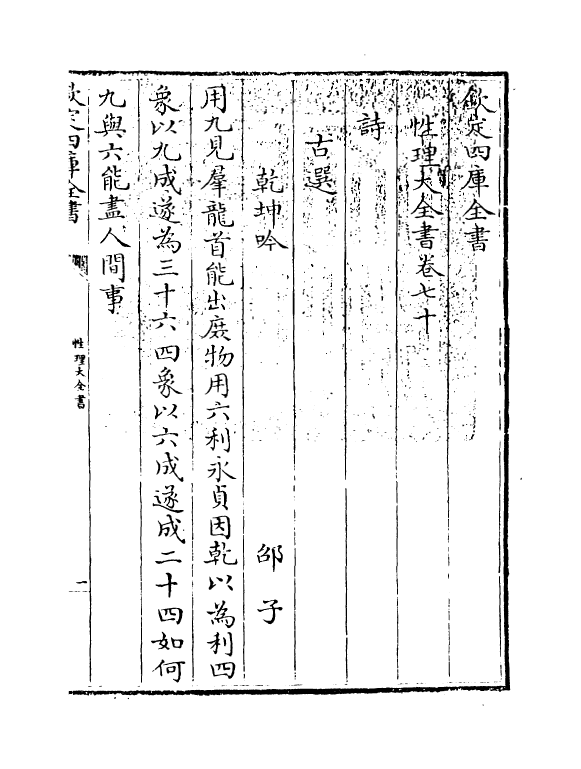 欽定四庫全書
性理大全書卷七十
詩
古選
乾坤吟 邵子
用九見羣龍首能出庻物用六利永貞因乾以為利四
象以九成遂為三十六四象以六成遂成二十四如何
九與六能盡人間事
欽定四庫全書
性理大全書
一